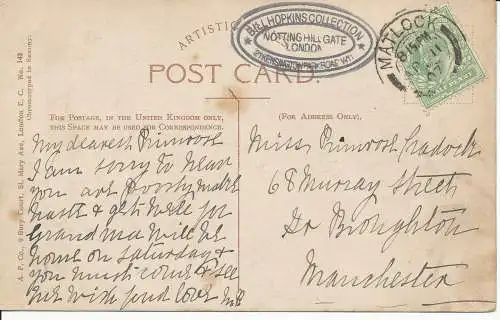 ARTISTIC
BILL HOPKINS COLLECTION
NOTTING HILL GATE
LONDON
KENSINGTON PARK ROAD W11
MATLOCK
8.15 PM
11
07
POST CARD.
FOR POSTAGE, IN THE UNITED KINGDOM ONLY,
THIS SPACE MAY BE USED FOR CORRESPONDENCE.
(FOR ADDRESS ONLY).
A. P. Co., 9 Bury Court, St. Mary Axe, London E. C. No. 143
Chromotyped in Saxony.
My dearest Primrose
I am sorry to hear
you are poorly make
haste & get well for
Grandma will be
home on Saturday &
you must come & see
her with fond love
Miss Primrose Cradock
68 Murray Street
Hr Broughton
Manchester